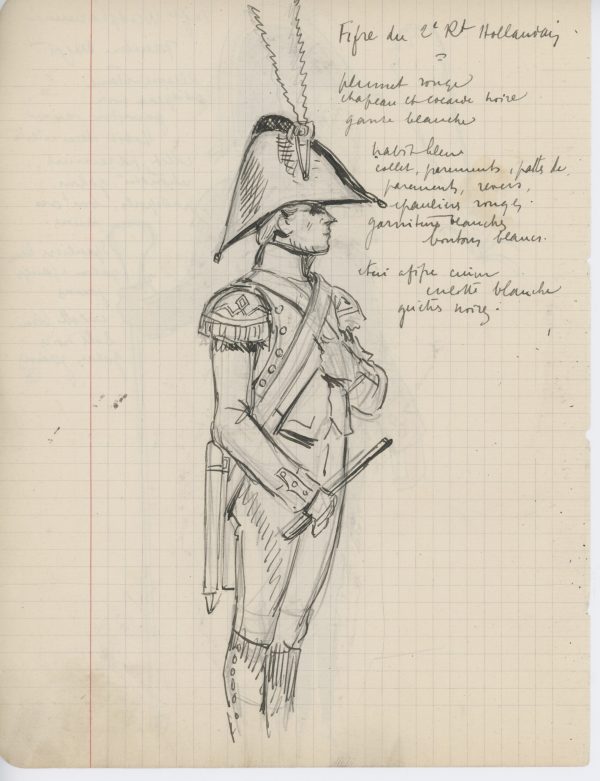 Fifre du 2e Rt Hollandais.
=
plumet rouge
chapeau et cocarde noire
ganse blanche
habit bleu
collet, parements, pattes de
parements, revers,
épauliers rouges.
garnitures blanches
boutons blancs.
étui à fifre cuivre
culotte blanche
guêtres noires.